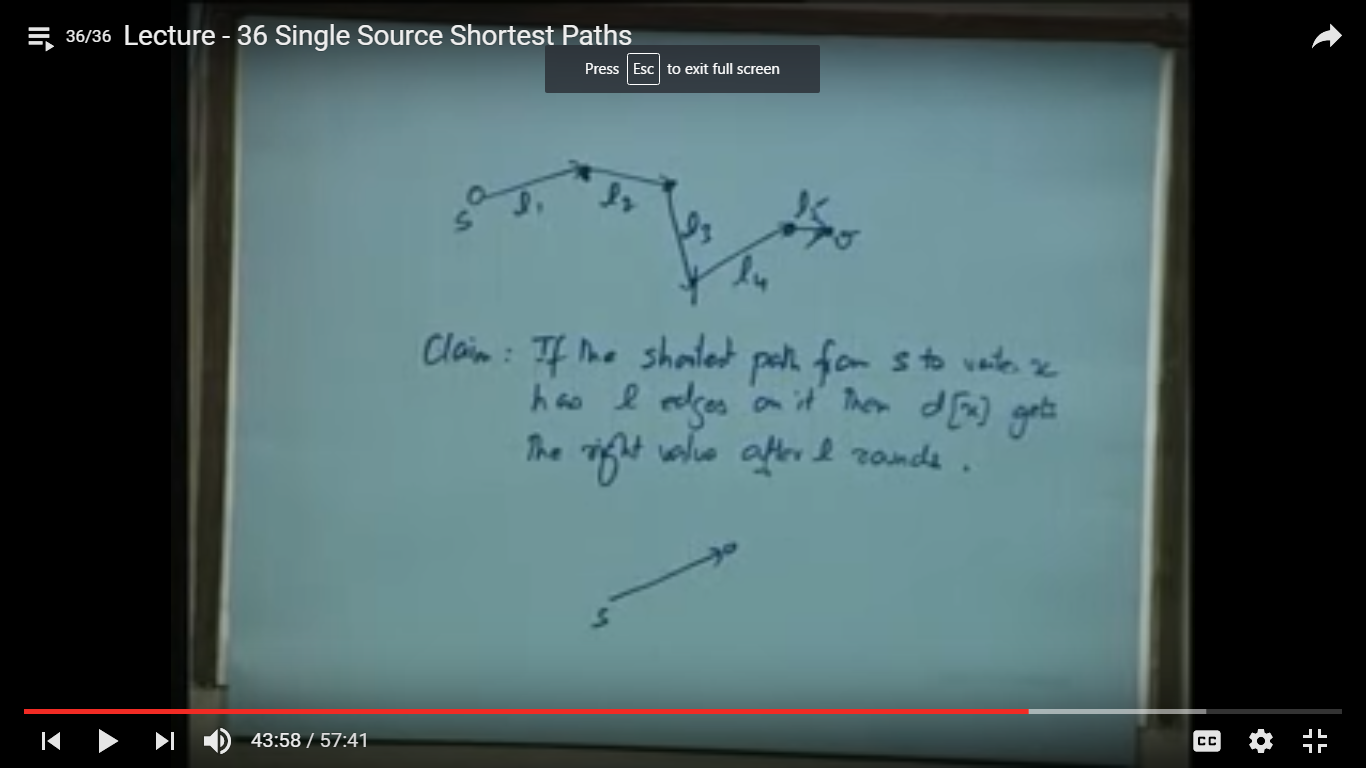 36/36 Lecture - 36 Single Source Shortest Paths
Press Esc to exit full screen
s l1 l2 l3 l4 l5 v
Claim : If the shortest path from s to vertex x
has l edges on it then d[x] gets
the right value after l rounds .
s
43:58 / 57:41
CC